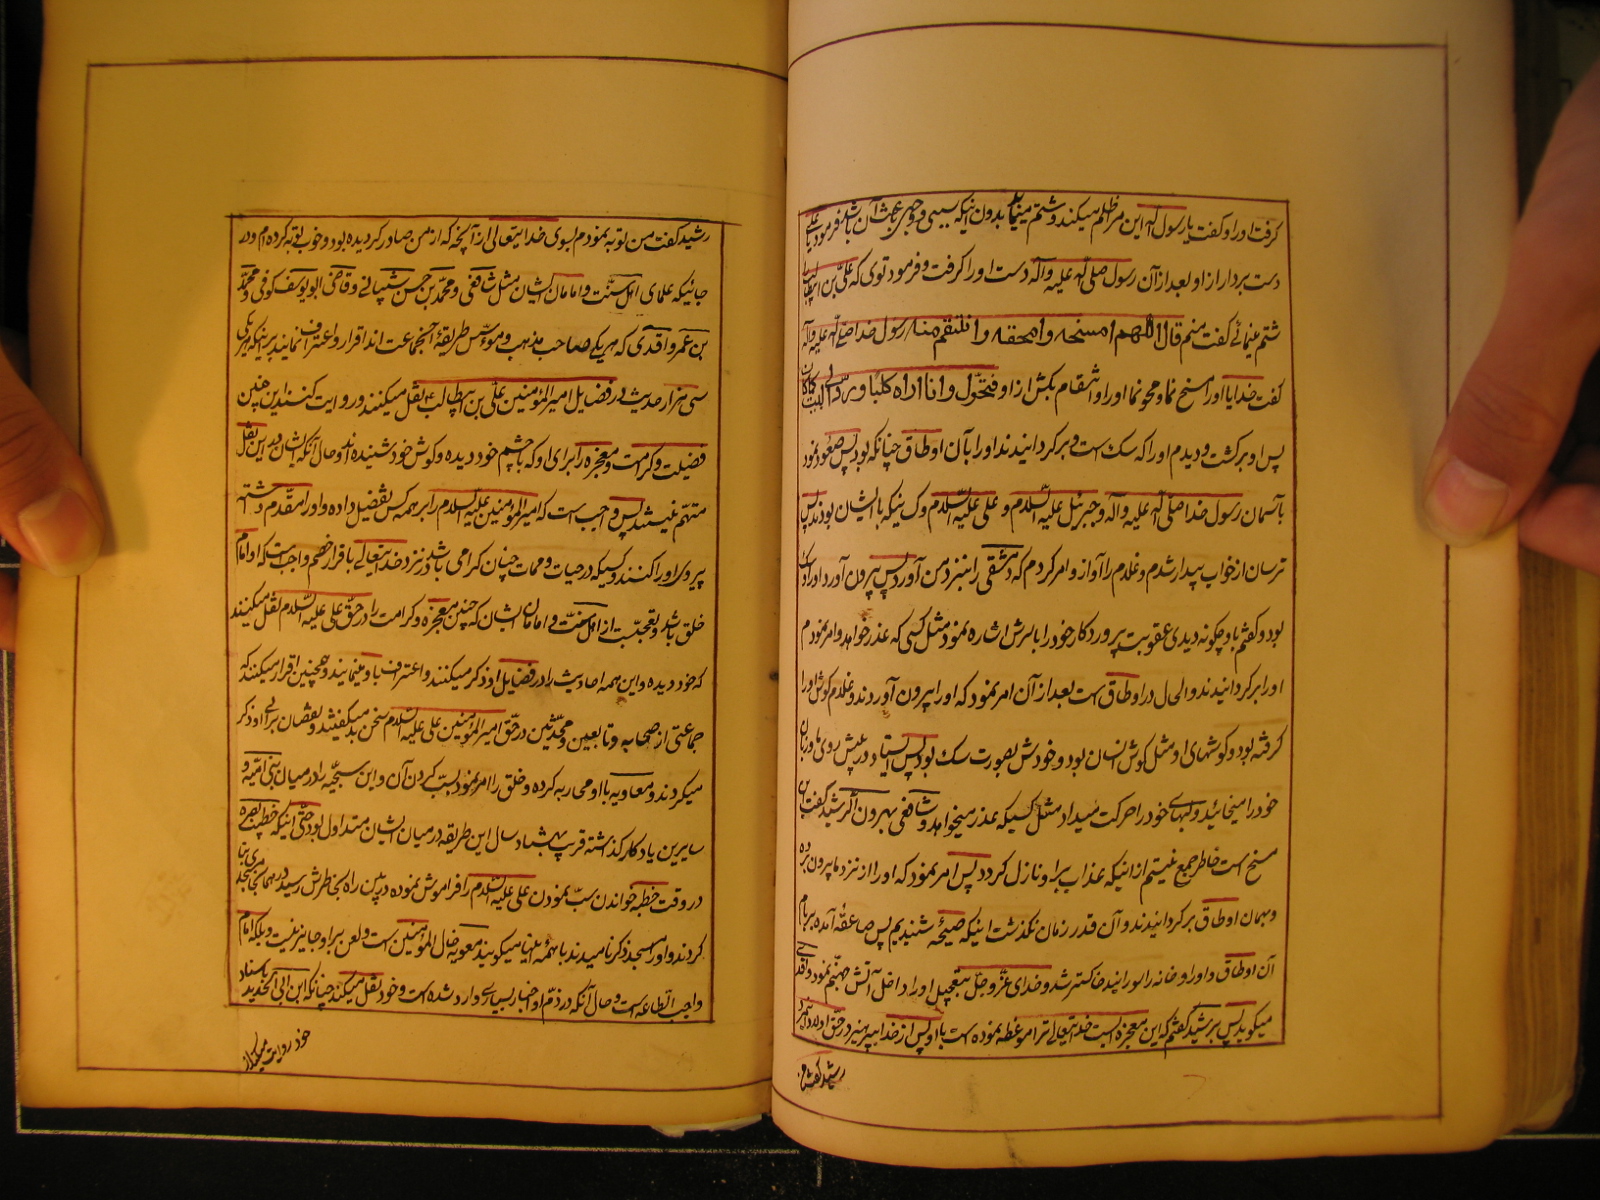 گرفت او را و گفت یا رسول الله این مرا ظلم میکند و شتم مینماید بدون اینکه سببی و وجهی باعث آن باشد فرمود یا علی
دست بردار از او بعد از آن رسول صلی الله علیه و آله دست او را گرفت و فرمود توی که علی بن ابیطالب را
شتم مینمائی گفت منم قال اللهم امسخه و امحقه و انتقم منه رسول خدا صلی الله علیه و آله
گفت خدایا او را مسخ نما و محو نما او را و انتقام بکش از او فتحول و انا اراه کلبا و رد الی البیت کما کان
پس او برگشت و دیدم او را که سک است و برگردانیدند او را بآن اوطاق چنانکه بود پس صعود نمود
بآسمان رسول خدا صلی الله علیه و آله و جبرئیل علیه السلام و علی علیه السلام و کسانیکه با ایشان بودند پس
ترسان از خواب بیدار شدم و غلام را آواز و امر کردم که دمشقی را بنزد من آورد پس بیرون آورد او را و سک
بود و گفتم باو چکونه دیدی عقوبت پروردکار خود را با سرش اشاره نمود مثل کسی که عذر خواهد و امر نمودم
او را برگردانیدند و الحال در اوطاق است بعد از آن امر نمود که او را بیرون آوردند و غلام کوش او را
گرفته بود و کوشهای او مثل کوش انسان بود و خودش بصورت سک بود پس ایستاد در پیش روی ما و زبان
خود را میخائید و لبهای خود را حرکت میداد مثل کسیکه عذر میخواهد و شافعی بهرون الرشید گفت این
مسخ است خاطر جمع نیستم از اینکه عذاب بر او نازل کردد پس امر نمود که او را از نزد ما بیرون برده
و بهمان اوطاق برگردانیدند و آن قدر زمان نکذشت اینکه صیحه شنیدیم پس صاعقه آمده بر بام
آن اوطاق و او را و خانه را سوزانید خاکستر شد و خدای عز و جل بتعجیل او را داخل آتش جهنم نمود واقدی
میکوید پس برشید گفتم که این معجزه ایست خدایتعالی ترا موعظه نموده است باو پس از خدا بپرهیز در حق اولاد این مرد
رشید گفت من
رشید گفت من توبه نمودم بسوی خدایتعالی از آنچه که از من صادر گردیده بود و خوب توبه کرده ام و در
جائیکه علمای اهل سنت و امامان ایشان مثل شافعی و محمد بن حسن شیبانی و قاضی ابو یوسف کوفی و محمد
بن عمر واقدی که هر یکی صاحب مذهب و مؤسس طریقه آنجماعت اند اقرار و اعتراف نمایند بر اینکه هر یکی
سی هزار حدیث در فضایل امیر المؤمنین علی بن ابیطالب نقل میکنند و روایت کنند این چنین
فضیلت و کرامت و معجزه را برای او که بچشم خود دیده و کوش خود شنیده اند و حال آنکه ایشان در این نقل
متهم نیستند پس واجب است که امیر المؤمنین علیه السلام را بر همه کس تفضیل داده و او را مقدم داشته
پیروی او را کنند و کسیکه در حیات و ممات چنان کرامی باشد نزد خدایتعالی باقرار خصم واجبست که او امام
خلق باشد و تعجبیست از اهل سنت و امامان ایشان که چنین معجزه و کرامت را در حق علی علیه السلام نقل میکنند
که خود دیده و این همه احادیث را در فضایل او ذکر میکنند و اعتراف باو مینمایند و همچنین اقرار میکنند که
جماعتی از صحابه و تابعین و محدثین در حق امیر المؤمنین علی علیه السلام سخن بد میکفتند و نقصان برای او ذکر
میکردند و معاویه با او محاربه کرده و خلق را امر نمود بسب کردن آن و این سجیه را در میان بنی امیه و
سایرین یادکار کذاشته قریب بهشتاد سال این طریقه در میان ایشان متداول بود حتی اینکه خطیب بصره
در وقت خطبه خواندن سب نمودن علی علیه السلام را فراموش نموده در بین راه بخاطرش رسید در همانجا مسجد بنا
کردند و او را مسجد ذکر نامیدند با همه اینها میکویند معویه خال المؤمنین است و لعن بر او جایز نیست و بلکه امام
واجب الطاعه است و حال آنکه در ذم او اخبار بسیاری وارد شده است و خود نقل میکند چنانکه ابن ابی الحدید باسناد
خود روایت میکند از